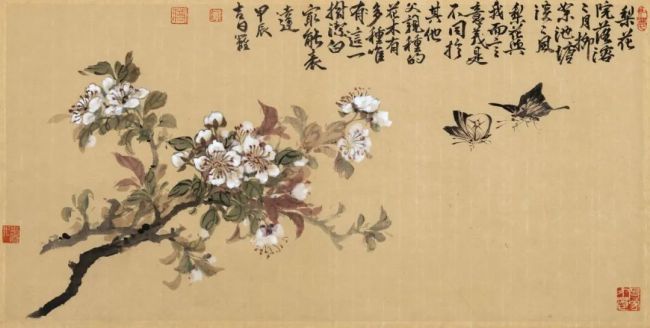 梨花
院落溶
〻月柳
絮池塘
淡〻風
梨花與
我而言
意義是
不同於
其他
父親種的
花木有
多種唯
有這一
樹潔白
最能表
達
甲辰
吉日羅